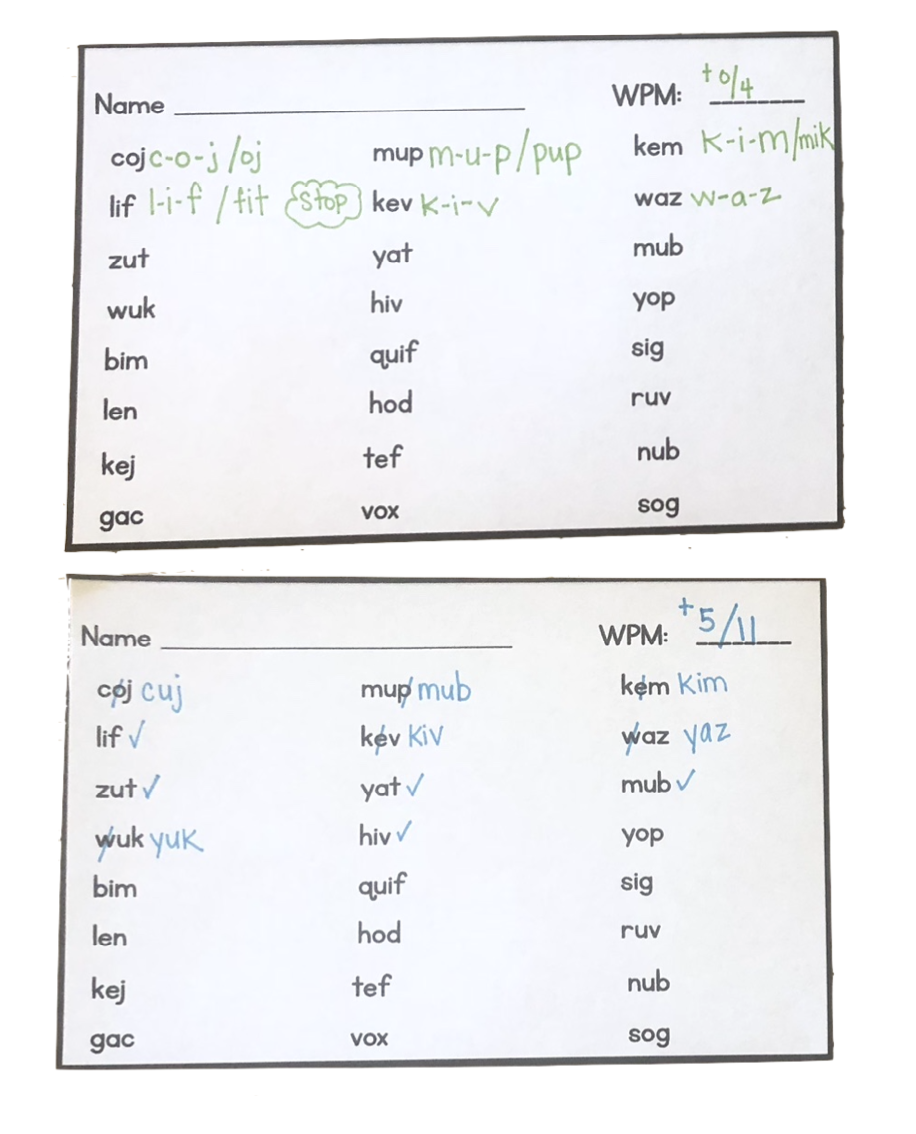 Name WPM: +0/4
coj c-o-j /oj mup m-u-p/pup kem k-i-m/mik
lif l-i-f /fit Stop kev k-i-v waz w-a-z
zut yat mub
wuk hiv yop
bim quif sig
len hod ruv
kej tef nub
gac vox sog
Name WPM: +5/11
coj cuj mup mub kem Kim
lif ✓ kev Kiv waz yaz
zut ✓ yat ✓ mub ✓
wuk yuk hiv ✓ yop
bim quif sig
len hod ruv
kej tef nub
gac vox sog